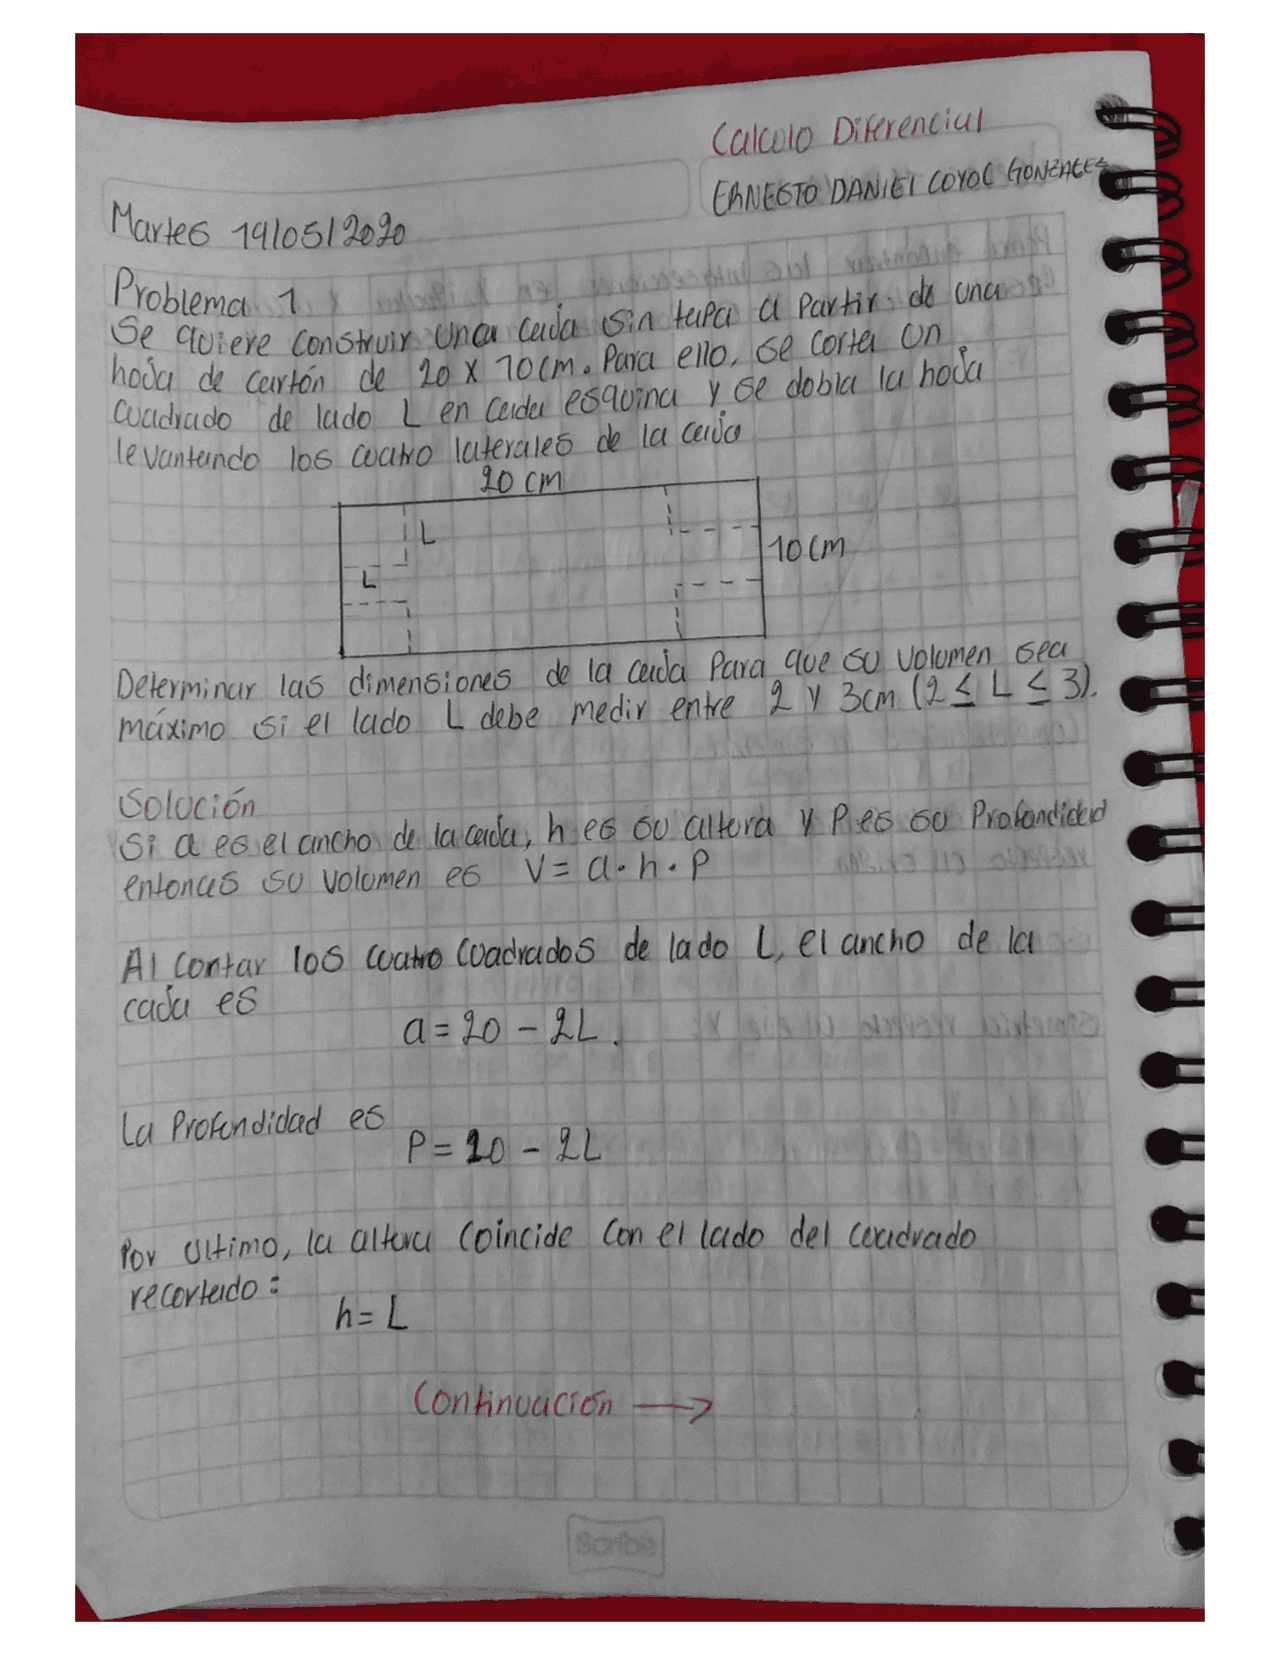 Calculo Diferencial
ERNESTO DANIEL COYOC GONZALES
Martes 19/05/2020
Problema 1
Se quiere construir una caja sin tapa a partir de una
hoja de cartón de 20 x 10cm. Para ello, se corta un
cuadrado de lado L en cada esquina y se dobla la hoja
levantando los cuatro laterales de la caja
20 cm
L
10 cm
L
Determinar las dimensiones de la caja para que su volumen sea
máximo si el lado L debe medir entre 2 y 3cm (2 ≤ L ≤ 3).
Solución
Si a es el ancho de la caja, h es su altura y P es su Profundidad
entonces su volumen es V = a · h · P
Al contar los cuatro cuadrados de lado L, el ancho de la
caja es
a = 20 - 2L.
La Profundidad es
P = 10 - 2L
Por ultimo, la altura coincide con el lado del cuadrado
recortado:
h = L
Continuación →
Scribe